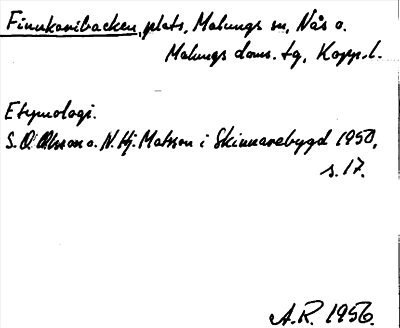 Finnkaribacken, plats, Malungs sn, Nås o.
Malungs doms. tg, Kopp. l.
Etymologi.
S. O. Olsson o. N. Hj. Matsson i Skinnarebygd 1950,
s. 17.
A.R. 1956.